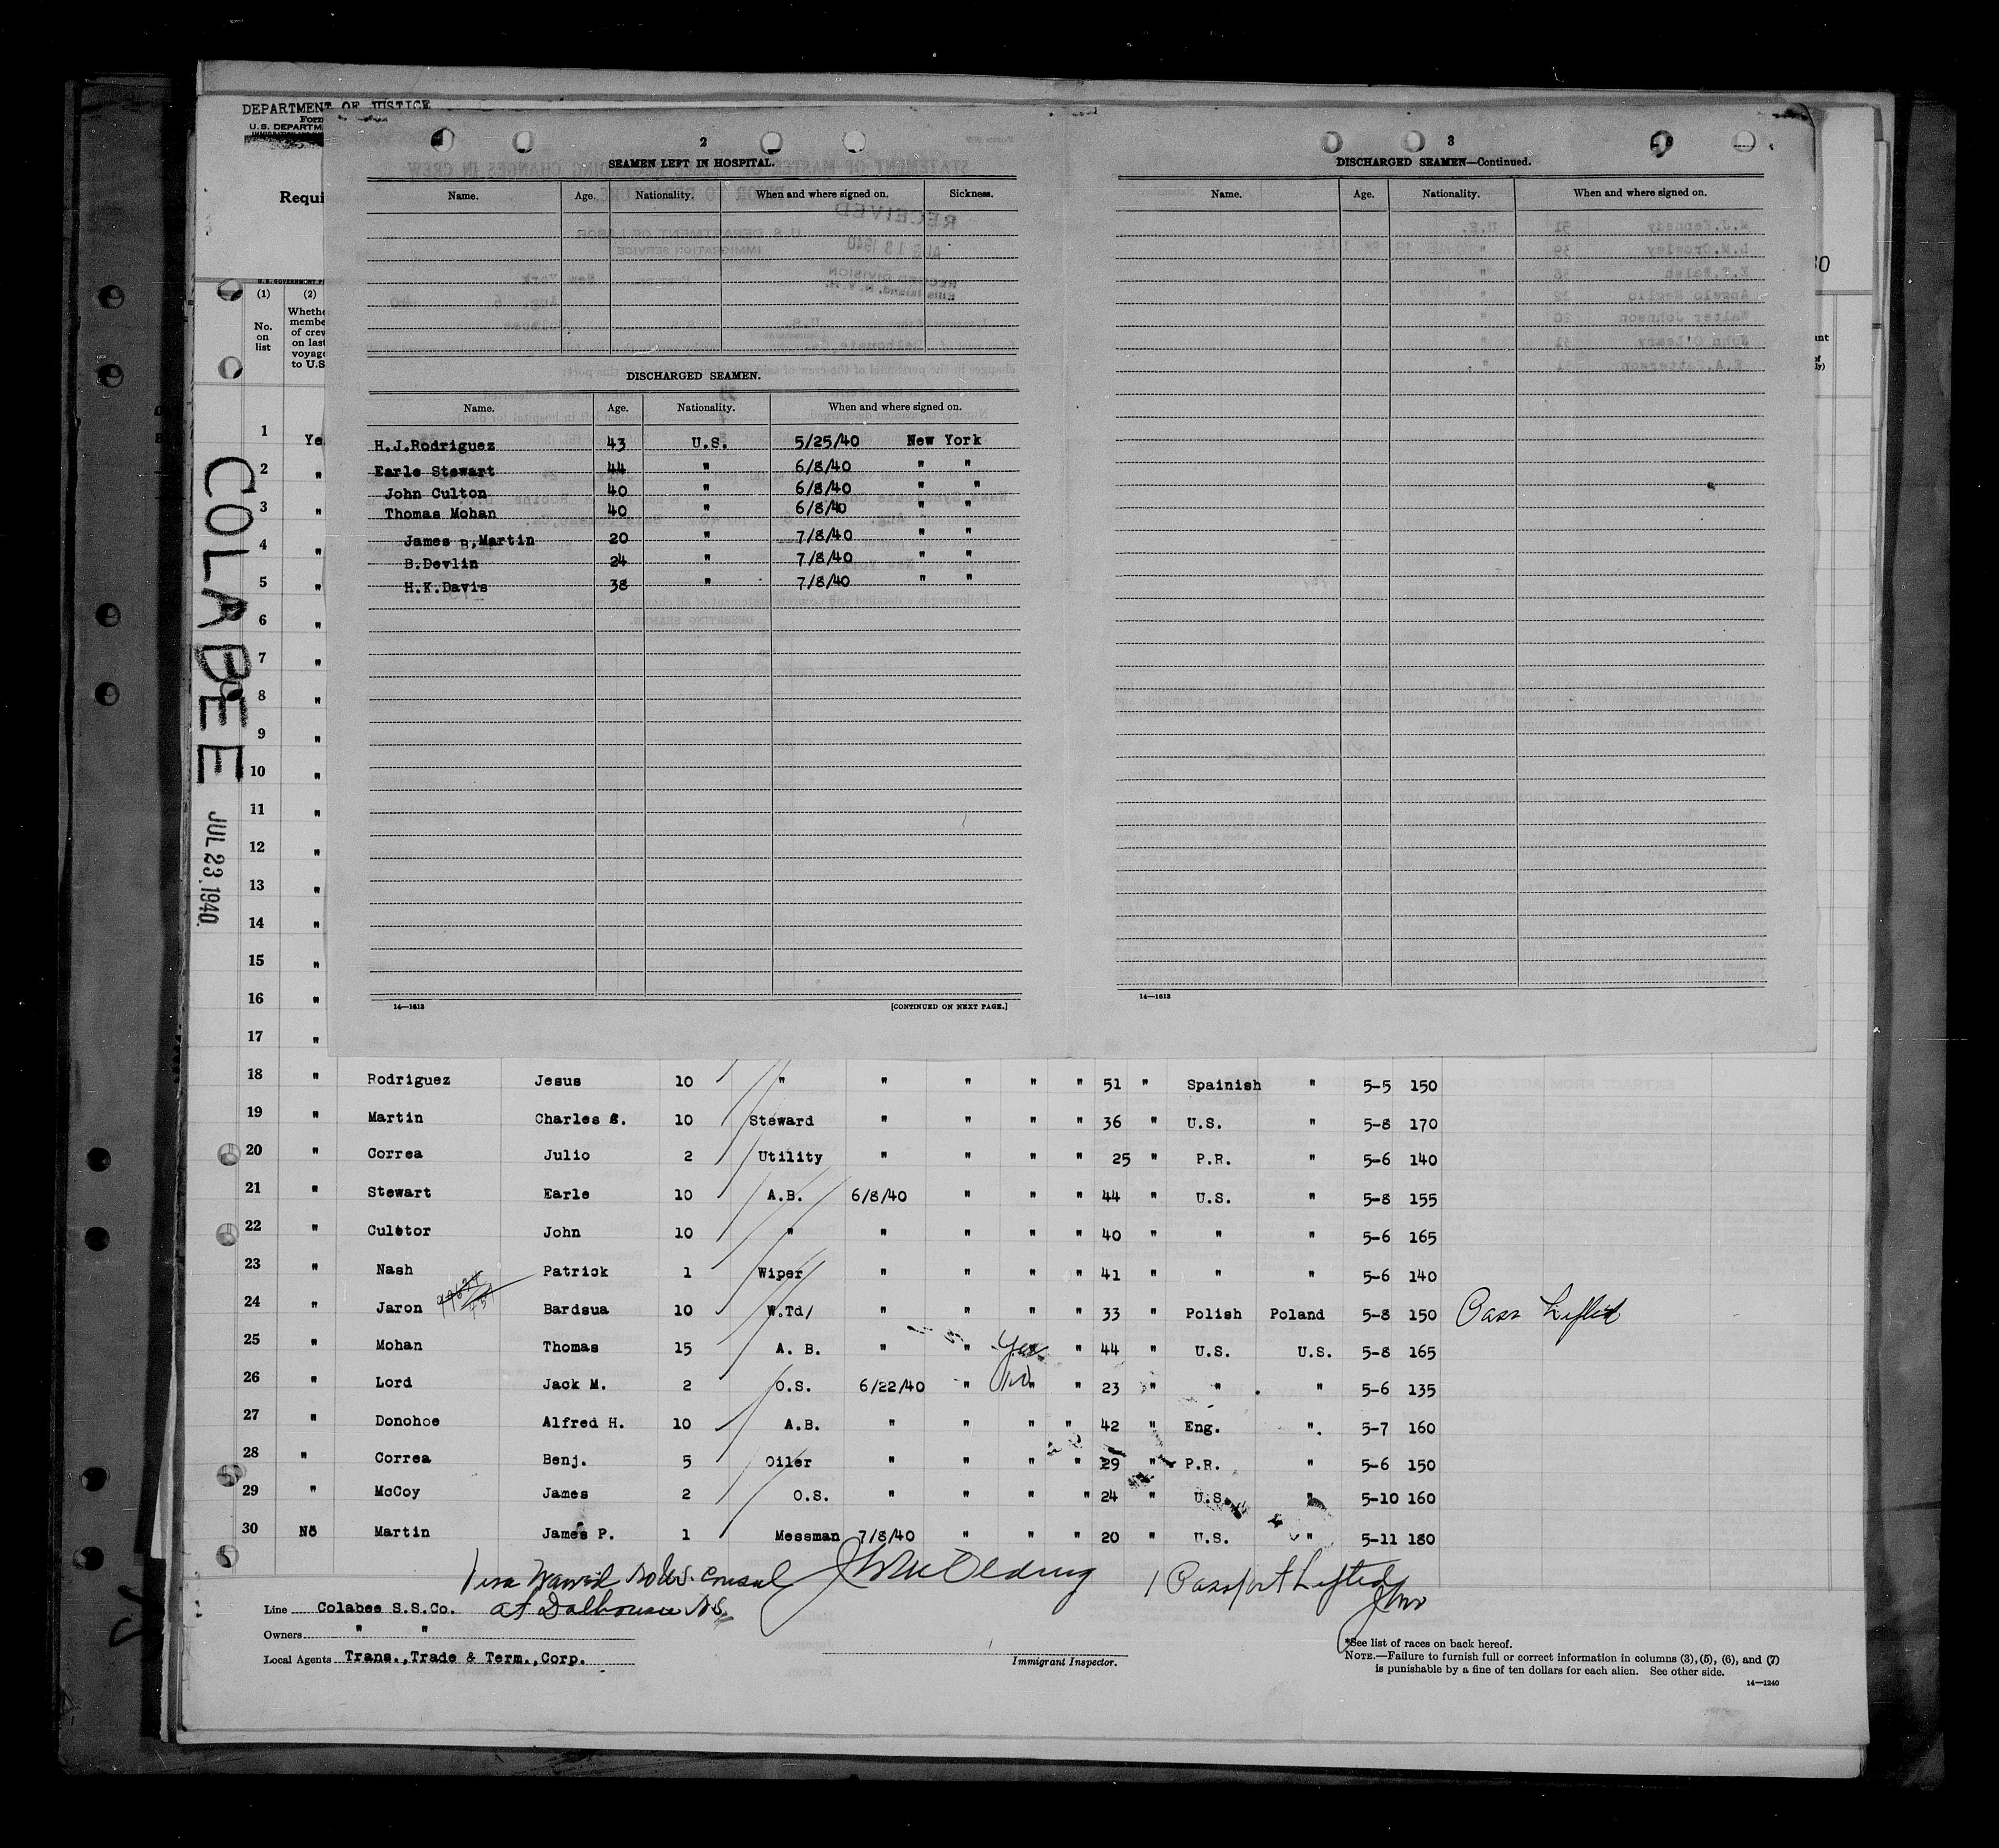 DEPARTMENT OF JUSTICE
Form
U.S. DEPARTM
Requi
COLABEE
JUL 23 1940
2
SEAMEN LEFT IN HOSPITAL.
Name. Age. Nationality. When and where signed on. Sickness.
DISCHARGED SEAMEN.
Name. Age. Nationality. When and where signed on.
H.J.Rodriguez 43 U.S. 5/25/40 New York
Earle Stewart 44 " 6/8/40 " "
John Culton 40 " 6/8/40 " "
Thomas Mohan 40 " 6/8/40 " "
James B,Martin 20 " 7/8/40 " "
B.Devlin 24 " 7/8/40 " "
H.K.Davis 38 " 7/8/40 " "
14—1613 [CONTINUED ON NEXT PAGE.]
3
DISCHARGED SEAMEN—Continued.
Name. Age. Nationality. When and where signed on.
14—1613
(1) (2)
No. on list
Whethe
membe
of crew
on last
voyage
to U.S.
1 Ye
2 "
3 "
4 "
5 "
6 "
7 "
8 "
9 "
10 "
11 "
12 "
13 "
14 "
15 "
16 "
17 "
18 " Rodriguez Jesus 10 " " " " " 51 " Spainish " 5-5 150
19 " Martin Charles S. 10 Steward " " " " 36 " U.S. " 5-8 170
20 " Correa Julio 2 Utility " " " " 25 " P.R. " 5-6 140
21 " Stewart Earle 10 A.B. 6/8/40 " " " 44 " U.S. " 5-8 155
22 " Culetor John 10 " " " " " 40 " " " 5-6 165
23 " Nash Patrick 1 Wiper " " " " 41 " " " 5-6 140
24 " Jaron Bardsua 10 W.Td/ " " " " 33 " Polish Poland 5-8 150 Pass Lifted
25 " Mohan Thomas 15 A. B. " " Yes " 44 " U.S. U.S. 5-8 165
26 " Lord Jack M. 2 O.S. 6/22/40 " " " 23 " " " 5-6 135
27 " Donohoe Alfred H. 10 A.B. " " " " 42 " Eng. " 5-7 160
28 " Correa Benj. 5 Oiler " " " " 29 " P.R. " 5-6 150
29 " McCoy James 2 O.S. " " " " 24 " U.S. " 5-10 160
30 No Martin James P. 1 Messman 7/8/40 " " " 20 " U.S. " 5-11 180
Visa Waived No U.S. Consul
at Dalhousie N.S.
1 Passport Lifted
Line Colabee S.S.Co.
Owners " "
Local Agents Trans.,Trade & Term.,Corp.
Immigrant Inspector.
*See list of races on back hereof.
NOTE.—Failure to furnish full or correct information in columns (3), (5), (6), and (7)
is punishable by a fine of ten dollars for each alien. See other side.
14—1240